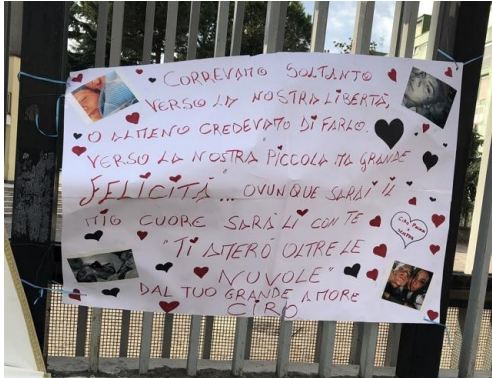 CORREVAMO SOLTANTO
VERSO LA NOSTRA LIBERTÀ,
O ALMENO CREDEVAMO DI FARLO.
VERSO LA NOSTRA PICCOLA MA GRANDE
FELICITÀ... OVUNQUE SARAI LÌ
MIO CUORE SARÀ LÌ CON TE
"TI AMERÒ OLTRE LE
NUVOLE"
DAL TUO GRANDE AMORE
CIRO